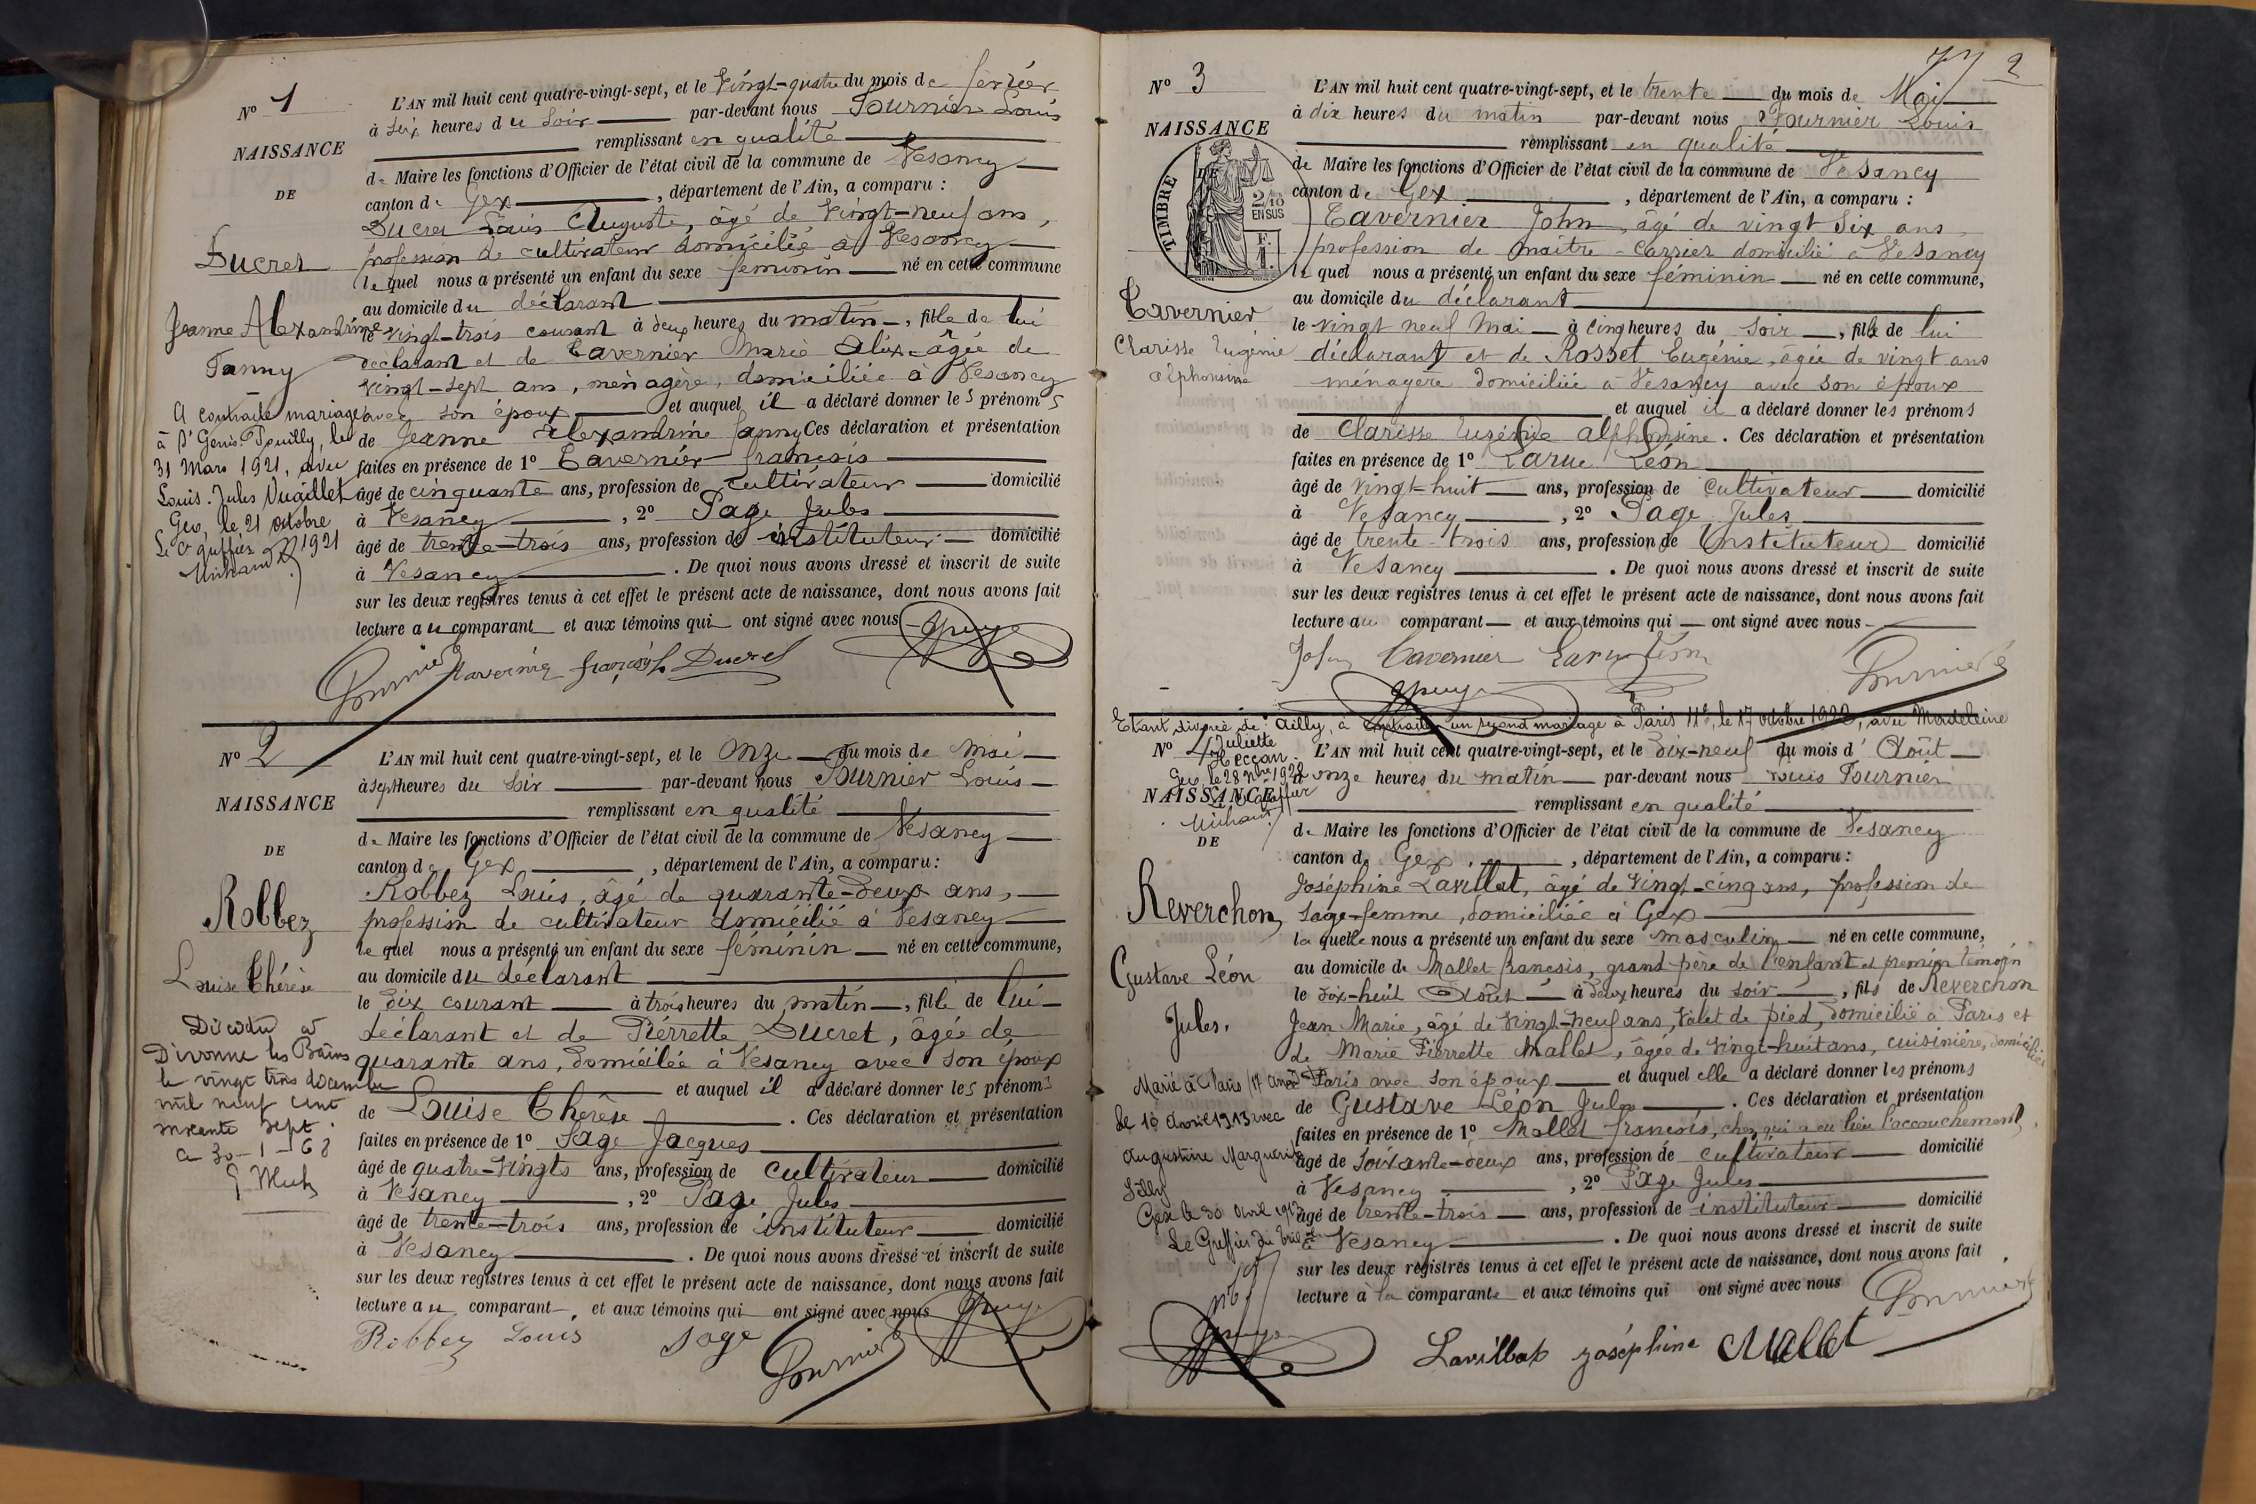 N° 1
NAISSANCE
DE
Ducret
Jeanne Alexandrine
Fanny
A contracté mariage
à St Genis-Pouilly, le
31 Mars 1921, avec
Louis-Jules Vuaillet
Gex, le 21 octobre
1921
Le Greffier
Michaud
L'AN mil huit cent quatre-vingt-sept, et le Vingt-quatre du mois de février
à six heures du soir par-devant nous Fournier Louis
remplissant en qualité
de Maire les fonctions d'Officier de l'état civil de la commune de Vesancy
canton de Gex, département de l'Ain, a comparu :
Ducret Louis Auguste, âgé de Vingt-neuf ans,
profession de cultivateur domicilié à Vesancy
lequel nous a présenté un enfant du sexe féminin né en cette commune
au domicile du déclarant
le vingt-trois courant à deux heures du matin, fille de lui
déclarant et de Tavernier Marie Alix âgée de
vingt-sept ans, ménagère, domiciliée à Vesancy
avec son époux et auquel il a déclaré donner les prénoms
de Jeanne Alexandrine fanny Ces déclaration et présentation
faites en présence de 1° Tavernier françois
âgé de cinquante ans, profession de cultivateur domicilié
à Vesancy, 2° Page Jules
âgé de trente-trois ans, profession de instituteur domicilié
à Vesancy. De quoi nous avons dressé et inscrit de suite
sur les deux registres tenus à cet effet le présent acte de naissance, dont nous avons fait
lecture au comparant et aux témoins qui ont signé avec nous
Fournier Tavernier françois L. Ducret JPage
N° 2
NAISSANCE
DE
Robbez
Louise Thérèse
Décédée à
Divonne les Bains
le vingt trois décembre
mil neuf cent
soixante sept.
Ce 30-1-68
L'AN mil huit cent quatre-vingt-sept, et le onze du mois de mai
à sept heures du soir par-devant nous Fournier Louis
remplissant en qualité
de Maire les fonctions d'Officier de l'état civil de la commune de Vesancy
canton de Gex, département de l'Ain, a comparu :
Robbez Louis, âgé de quarante-deux ans,
profession de cultivateur domicilié à Vesancy
lequel nous a présenté un enfant du sexe féminin né en cette commune,
au domicile du déclarant
le dix courant à trois heures du matin, fille de lui
déclarant et de Piérrette Ducret, âgée de
quarante ans, domiciliée à Vesancy avec son époux
et auquel il a déclaré donner les prénoms
de Louise Thérèse. Ces déclaration et présentation
faites en présence de 1° Sage Jacques
âgé de quatre-vingts ans, profession de cultivateur domicilié
à Vesancy, 2° Page Jules
âgé de trente-trois ans, profession de instituteur domicilié
à Vesancy. De quoi nous avons dressé et inscrit de suite
sur les deux registres tenus à cet effet le présent acte de naissance, dont nous avons fait
lecture au comparant, et aux témoins qui ont signé avec nous
Robbez Louis Sage Fournier JPage
2
N° 3
NAISSANCE
DE
TIMBRE
2/10
EN SUS
F.
1.
Tavernier
Clarisse Eugénie
alphonsine
L'AN mil huit cent quatre-vingt-sept, et le trente du mois de Mai
à dix heures du matin par-devant nous Fournier Louis
remplissant en qualité
de Maire les fonctions d'Officier de l'état civil de la commune de Vesancy
canton de Gex, département de l'Ain, a comparu :
Tavernier John, âgé de vingt Six ans,
profession de maître-carrier domicilié à Vesancy
lequel nous a présenté un enfant du sexe féminin né en cette commune,
au domicile du déclarant
le vingt neuf Mai à cinq heures du soir, fille de lui
déclarant et de Rosset Eugénie, âgée de vingt ans
ménagère domiciliée à Vesancy avec son époux
et auquel il a déclaré donner les prénoms
de Clarisse Eugénie alphonsine. Ces déclaration et présentation
faites en présence de 1° Larue Léon
âgé de vingt-huit ans, profession de cultivateur domicilié
à Vesancy, 2° Page Jules
âgé de trente-trois ans, profession de Instituteur domicilié
à Vesancy. De quoi nous avons dressé et inscrit de suite
sur les deux registres tenus à cet effet le présent acte de naissance, dont nous avons fait
lecture au comparant et aux témoins qui ont signé avec nous
John Tavernier Larue Léon Fournier
JPage
Etant divorcé de Gilly, a contracté un second mariage à Paris 11e, le 17 octobre 1922, avec Madeleine
Juliette
Gex, le 28 9bre 1922
Le Greffier
Michaud
N° 4
NAISSANCE
DE
Reverchon
Gustave Léon
Jules.
Marié à Paris
le 10 Avril 1913 avec
Augustine Marguerite
Gilly
Gex le 30 Avril 1913
Le Greffier du Trib.
L'AN mil huit cent quatre-vingt-sept, et le dix-neuf du mois d'Août
à onze heures du matin par-devant nous Louis Fournier
remplissant en qualité
de Maire les fonctions d'Officier de l'état civil de la commune de Vesancy
canton de Gex, département de l'Ain, a comparu :
Joséphine Lavillat, âgé de vingt-cinq ans, profession de
sage-femme, domiciliée à Gex
laquelle nous a présenté un enfant du sexe masculin né en cette commune,
au domicile de Mallet françois, grand-père de l'enfant et premier témoin
le dix-huit Août à deux heures du soir, fils de Reverchon
Jean Marie, âgé de vingt-neuf ans, Valet de pied, domicilié à Paris et
de Marie Pierrette Mallet, âgée de vingt-huit ans, cuisinière, domiciliée
à Paris avec son époux et auquel elle a déclaré donner les prénoms
de Gustave Léon Jules. Ces déclaration et présentation
faites en présence de 1° Mallet françois, chez qui a eu lieu l'accouchement,
âgé de soixante-deux ans, profession de cultivateur domicilié
à Vesancy, 2° Page Jules
âgé de trente-trois ans, profession de instituteur domicilié
à Vesancy. De quoi nous avons dressé et inscrit de suite
sur les deux registres tenus à cet effet le présent acte de naissance, dont nous avons fait
lecture à la comparante et aux témoins qui ont signé avec nous
Fournier
JPage Lavillat Joséphine Mallet